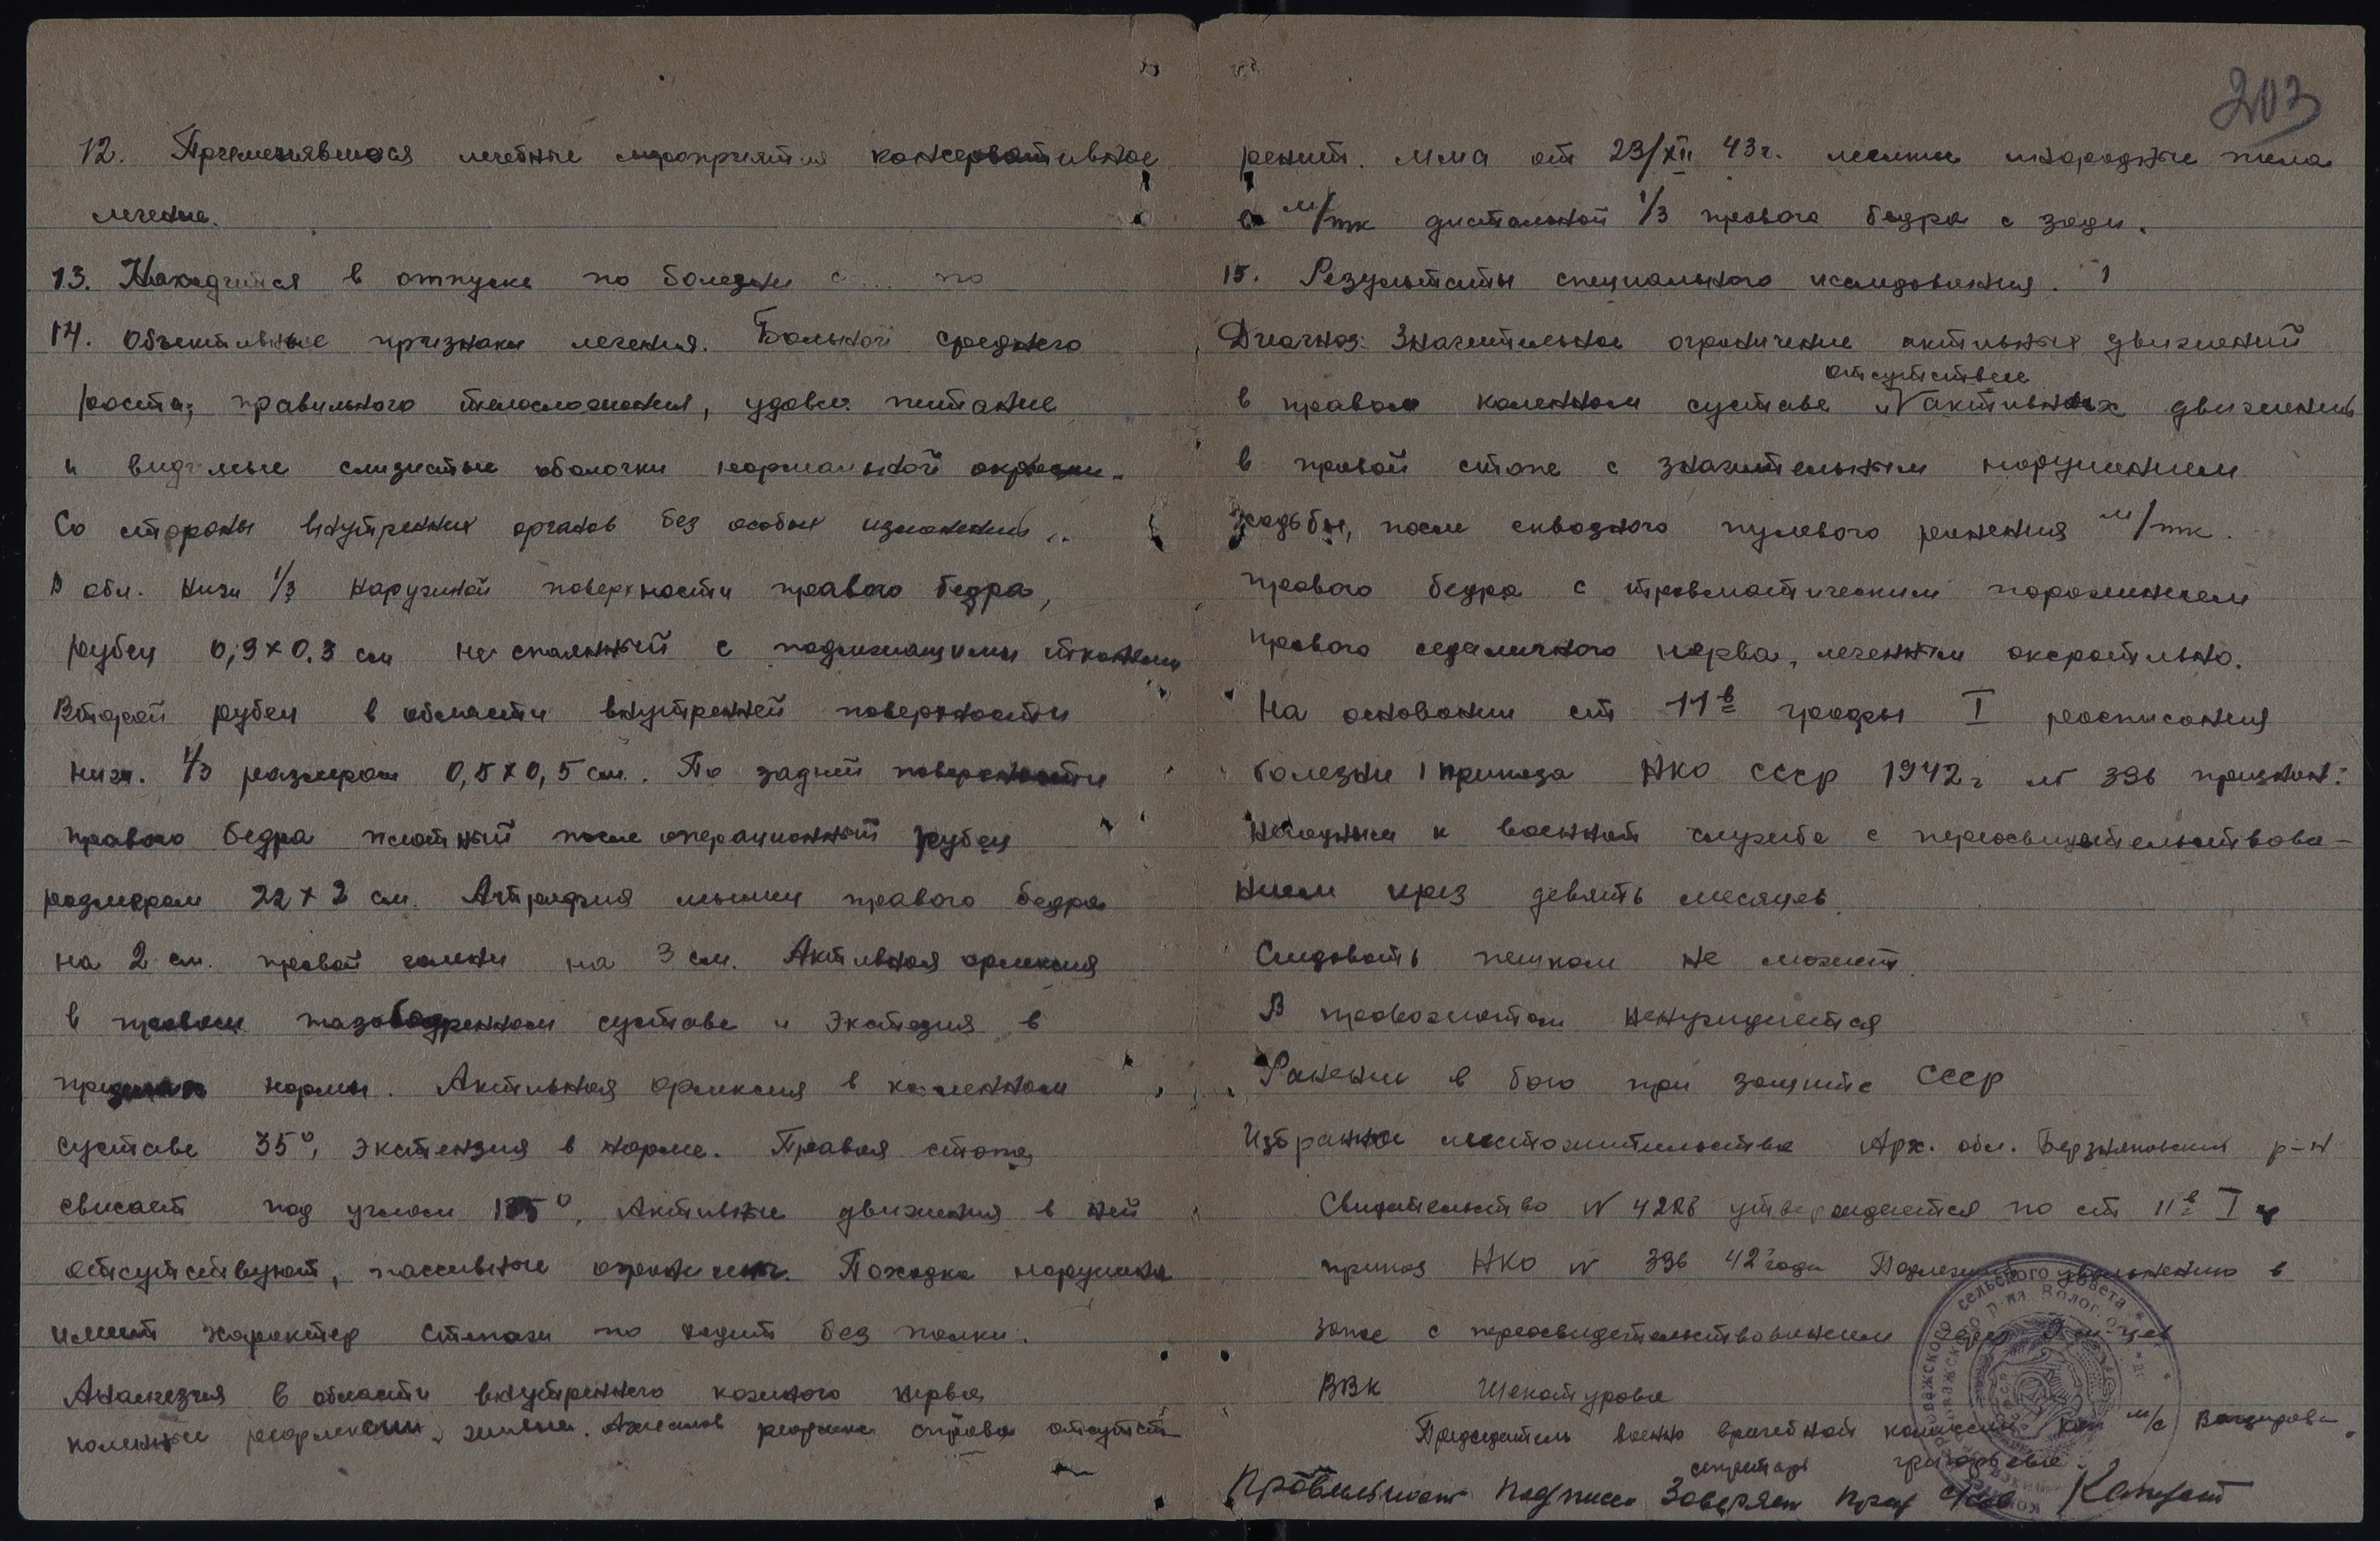 203
12. Применявшиеся лечебные мероприятия консервативное
лечение.
13. Находится в отпуске по болезни с... по
14. Объективные признаки лечения. Больной среднего
роста, правильного телосложения, удовл. питание
и видимые слизистые оболочки нормальной окраски.
Со стороны внутренних органов без особых изменений..
В обл. нижн 1/3 наружной поверхности правого бедра,
рубец 0,9 х 0.3 см не спаянный с подлежащими тканями
Второй рубец в области внутренней поверхности
нижн. 1/3 размером 0,5 х 0,5 см. По задней поверхности
правого бедра плотный после операционный рубец
размером 22 х 2 см. Атрофия мышц правого бедра
на 2 см. правой голени на 3 см. Активная флексия
в правом тазобедренном суставе и Экстезия в
пределах нормы. Активная флексия в коленном
суставе 35°, экстензия в норме. Правая стопа
свисает под углом 135°, Активные движения в ней
отсутствуют, пассивные огранич. Походка нарушена
имеет характер степажи но ходит без палки.
Аналгезия в области внутреннего кожного нерва
коленные рефлексы живые. Ахиллов рефлекс справа отсутст
рентг. мма от 23/XII 43г. мелкие инородные тела
в м/тк дистальной 1/3 правого бедра с зади.
15. Результаты специального исследования.
Диагноз: Значительное ограничение активных движений
в правом коленном суставе и отсутствие активных движений
в правой стопе с значительным нарушением
ходьбы, после сквозного пулевого ранения м/тк.
правого бедра с травматическим поражением
правого седалищного нерва, леченным оперативно.
На основании ст 11в графы I расписания
болезни приказа НКО СССР 1942г № 336 признан:
негодным к военной службе с переосвидетельствова-
нием через девять месяцев.
Следовать пешком не может.
В провожатом ненуждается
Ранение в бою при защите СССР
Избранное местожительство Арх. обл. р-н
Свидетельство N утверждается по ст 11в I г
приказ НКО N 336 42 года Подлежит увольнению в
запас с переосвидетельствованием через 9 м-цев
ВВК Шекатурова
Председатель военно врачебной комиссии кап м/с
секретарь Григорьева
Правильность Подписей Заверяет
сельского Совета